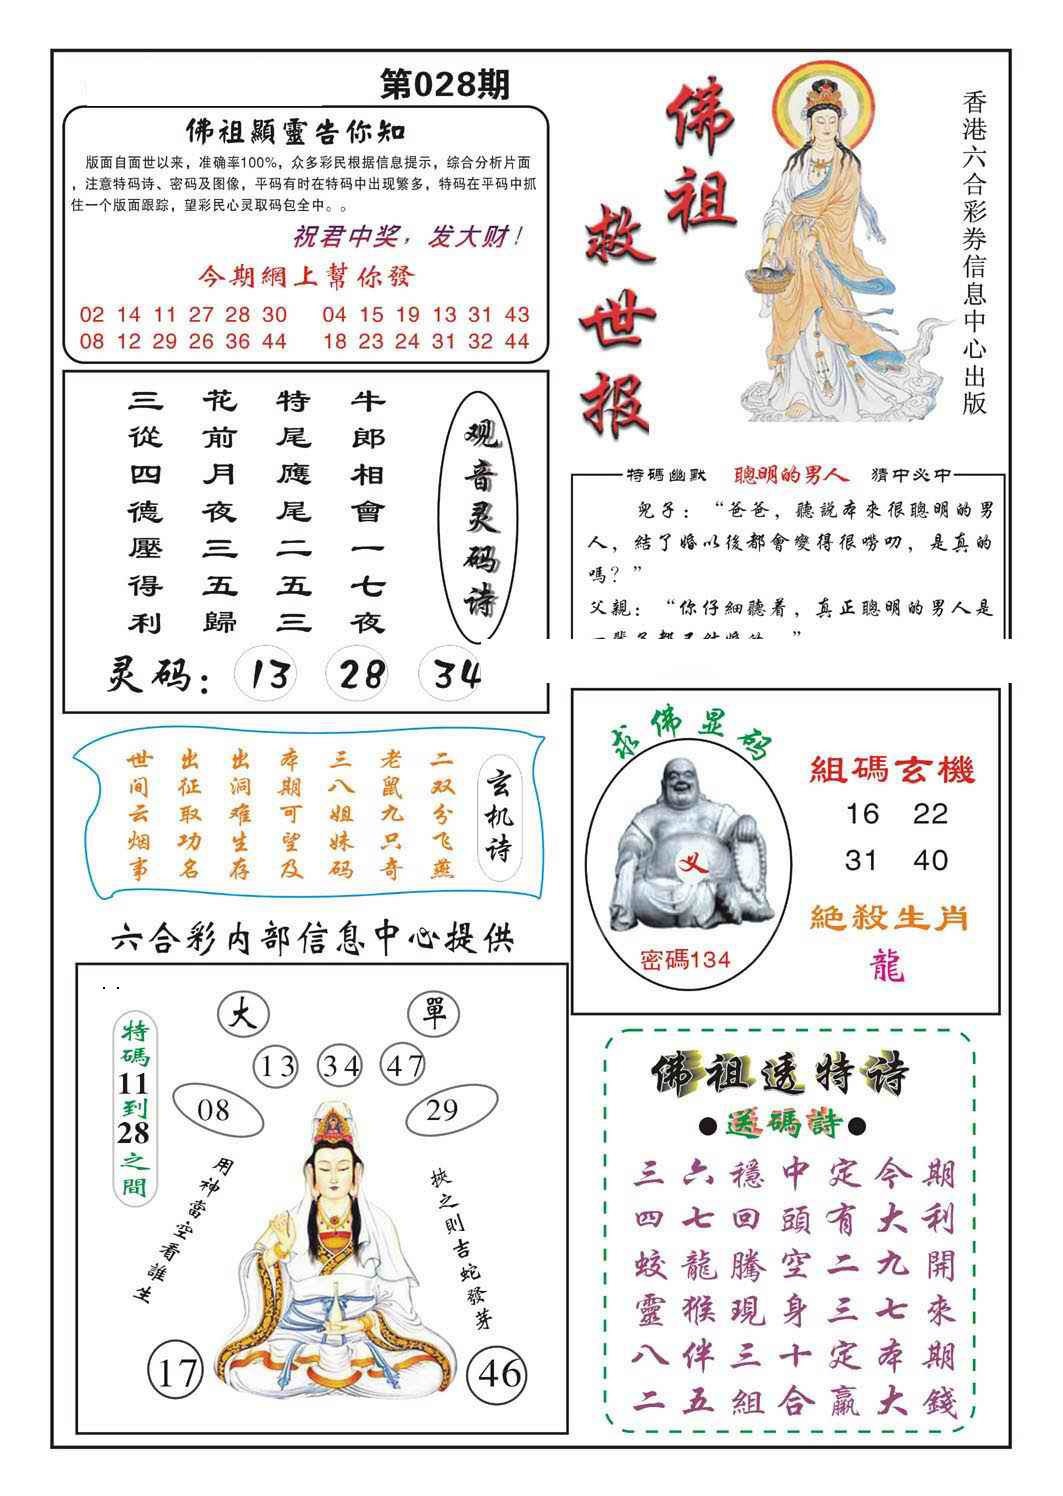 第028期
佛祖顯靈告你知
版面自面世以来，准确率100%，众多彩民根据信息提示，综合分析片面
，注意特码诗、密码及图像，平码有时在特码中出现繁多，特码在平码中抓
住一个版面跟踪，望彩民心灵取码包全中。。
祝君中奖，发大财！
今期網上幫你發
02 14 11 27 28 30 04 15 19 13 31 43
08 12 29 26 36 44 18 23 24 31 32 44
佛祖
救世报
香港六合彩券信息中心出版
观音灵码诗
牛郎相會一七夜
特尾應尾二五三
花前月夜三五歸
三從四德壓得利
灵码：13 28 34
特碼幽默 聰明的男人 猜中必中
兒子：“爸爸，聽説本來很聰明的男
人，結了婚以後都會變得很嘮叨，是真的
嗎？”
父親：“你仔細聽着，真正聰明的男人是
玄机诗
二双分飞燕
老鼠九只奇
三八姐妹码
本期可望及
出洞难生存
出征取功名
世间云烟事
求佛显码
义
密碼134
組碼玄機
16 22
31 40
絶殺生肖
龍
六合彩内部信息中心提供
特碼11到28之間
大 單
13 34 47
08 29
用神當空看誰生
挾之則吉蛇發芽
17 46
佛祖透特诗
●送碼詩●
三六穩中定今期
四七回頭有大利
蛟龍騰空二九開
靈猴現身三七來
八伴三十定本期
二五組合贏大錢